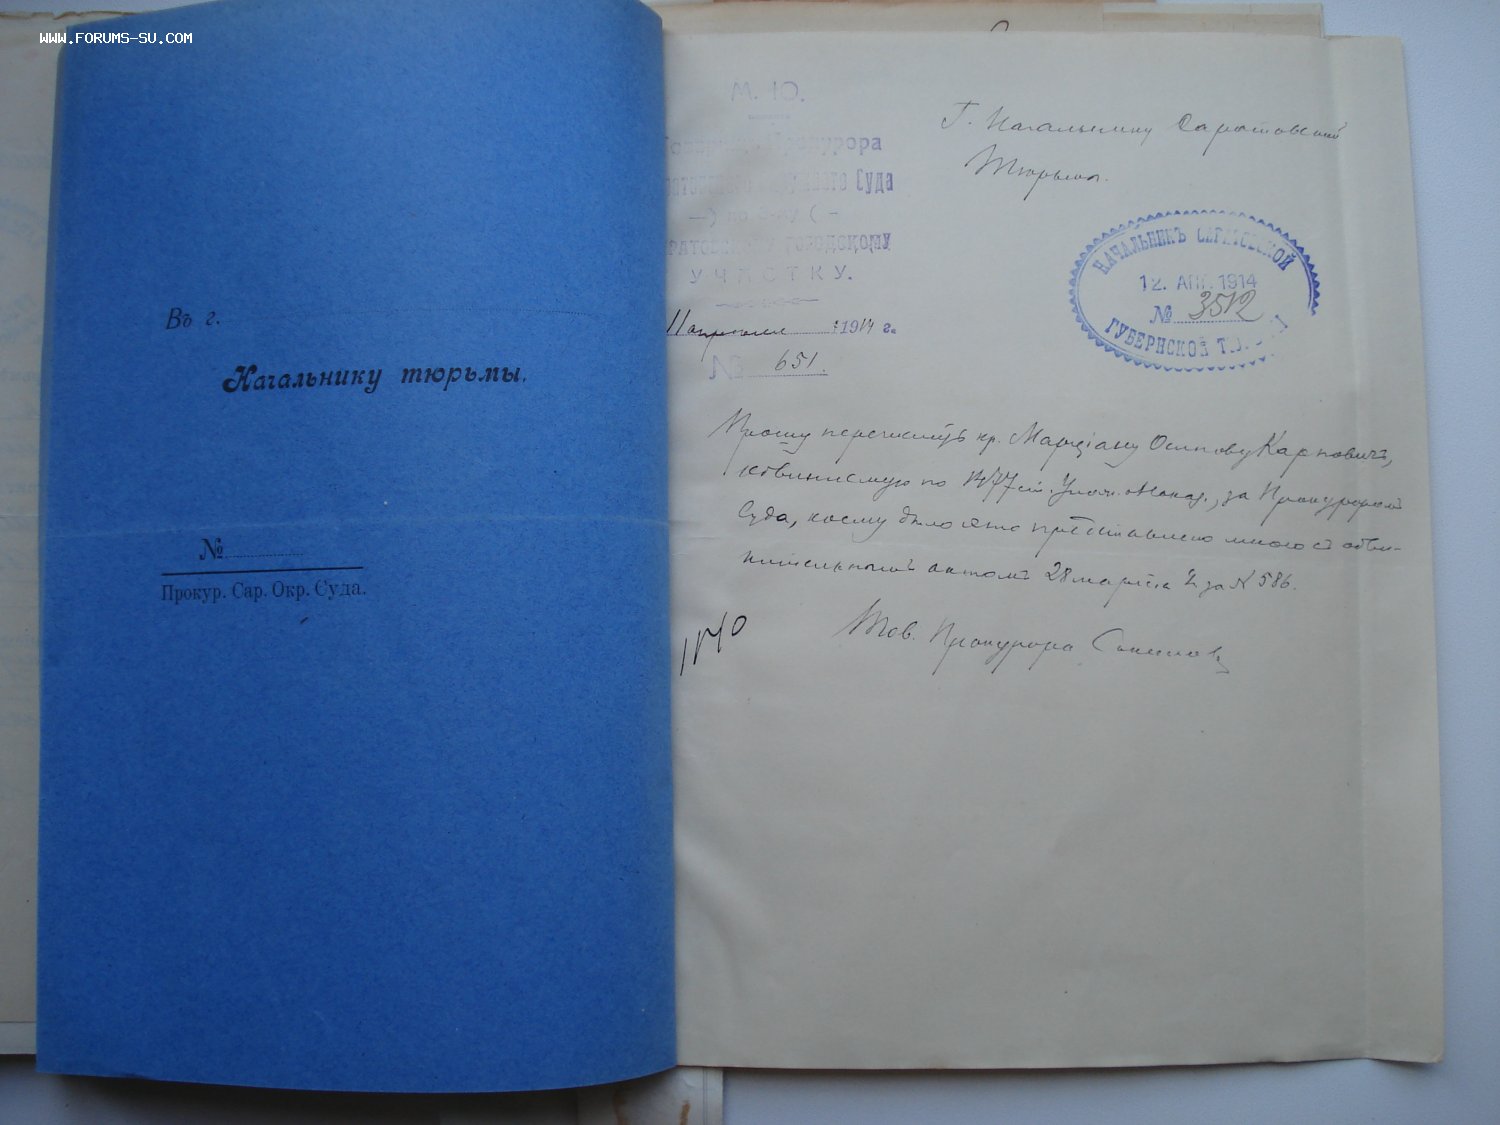 www.forums-su.com
Въ г.
Начальнику тюрьмы.
№
Прокур. Сар. Окр. Суда.
М. Ю.
Прокурора
Суда
по 6-му
городскому
УЧАСТКУ.
11 апреля 1914 г.
№ 651.
Г. Начальнику Саратовской
Тюрьмы.
НАЧАЛЬНИКЪ САРАТОВСКОЙ
12. АПР. 1914
№ 3512
ГУБЕРНСКОЙ
Прошу перечислить кр. Марціану Осипову Карповичъ,
обвиняемую по 1477 ст. Улож. о Наказ., за Прокуроромъ
Суда, коему дело это представлено мною съ обви-
нительнымъ актомъ 28 марта за № 586.
Тов. Прокурора